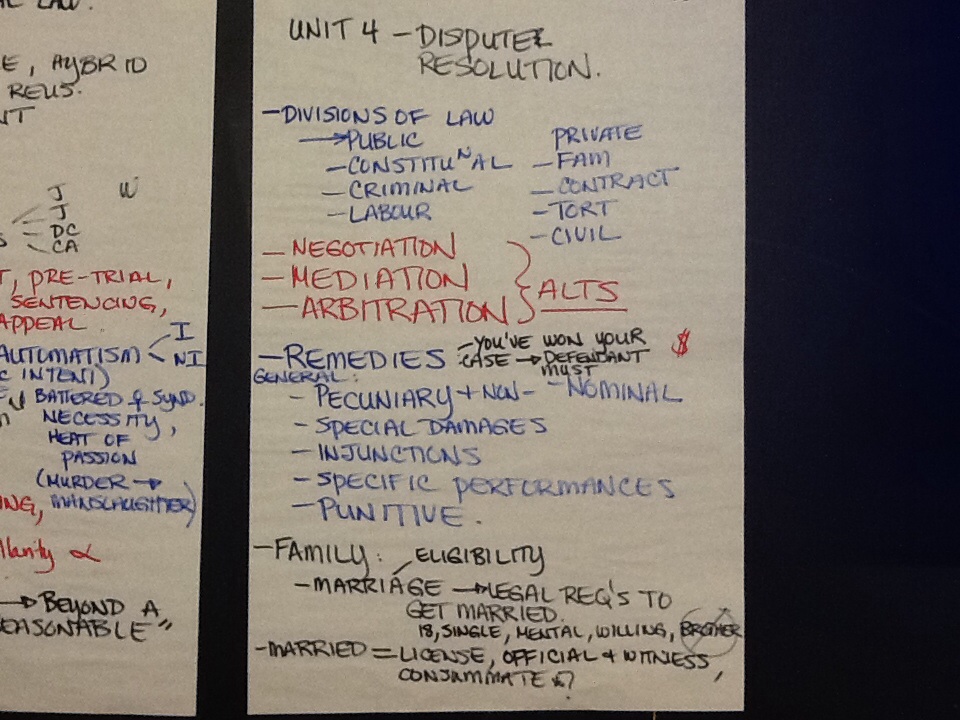 AL LAW.
E, HYBRID
REUS.
NT
J W
J
DC
CA
T, PRE-TRIAL,
SENTENCING,
APPEAL.
I
AUTOMATISM < NI
C INTENT)
BATTERED ♀ SYND.
NECESSITY,
HEAT OF
PASSION
(MURDER →
ING, MANSLAUGHTER)
→ BEYOND A
REASONABLE"
UNIT 4 - DISPUTE
RESOLUTION.
- DIVISIONS OF LAW
→ PUBLIC PRIVATE
- CONSTITUᴺAL - FAM
- CRIMINAL - CONTRACT
- LABOUR - TORT
- CIVIL
- NEGOTIATION
- MEDIATION } ALTS
- ARBITRATION
- REMEDIES - YOU'VE WON YOUR $
CASE → DEFENDANT
MUST
GENERAL:
- PECUNIARY + NON- - NOMINAL
- SPECIAL DAMAGES
- INJUNCTIONS
- SPECIFIC PERFORMANCES
- PUNITIVE.
- FAMILY: ELIGIBILITY
- MARRIAGE → LEGAL REQ'S TO
GET MARRIED.
18, SINGLE, MENTAL, WILLING, BROTHER
- MARRIED = LICENSE, OFFICIAL + WITNESS,
CONSUMMATE ?